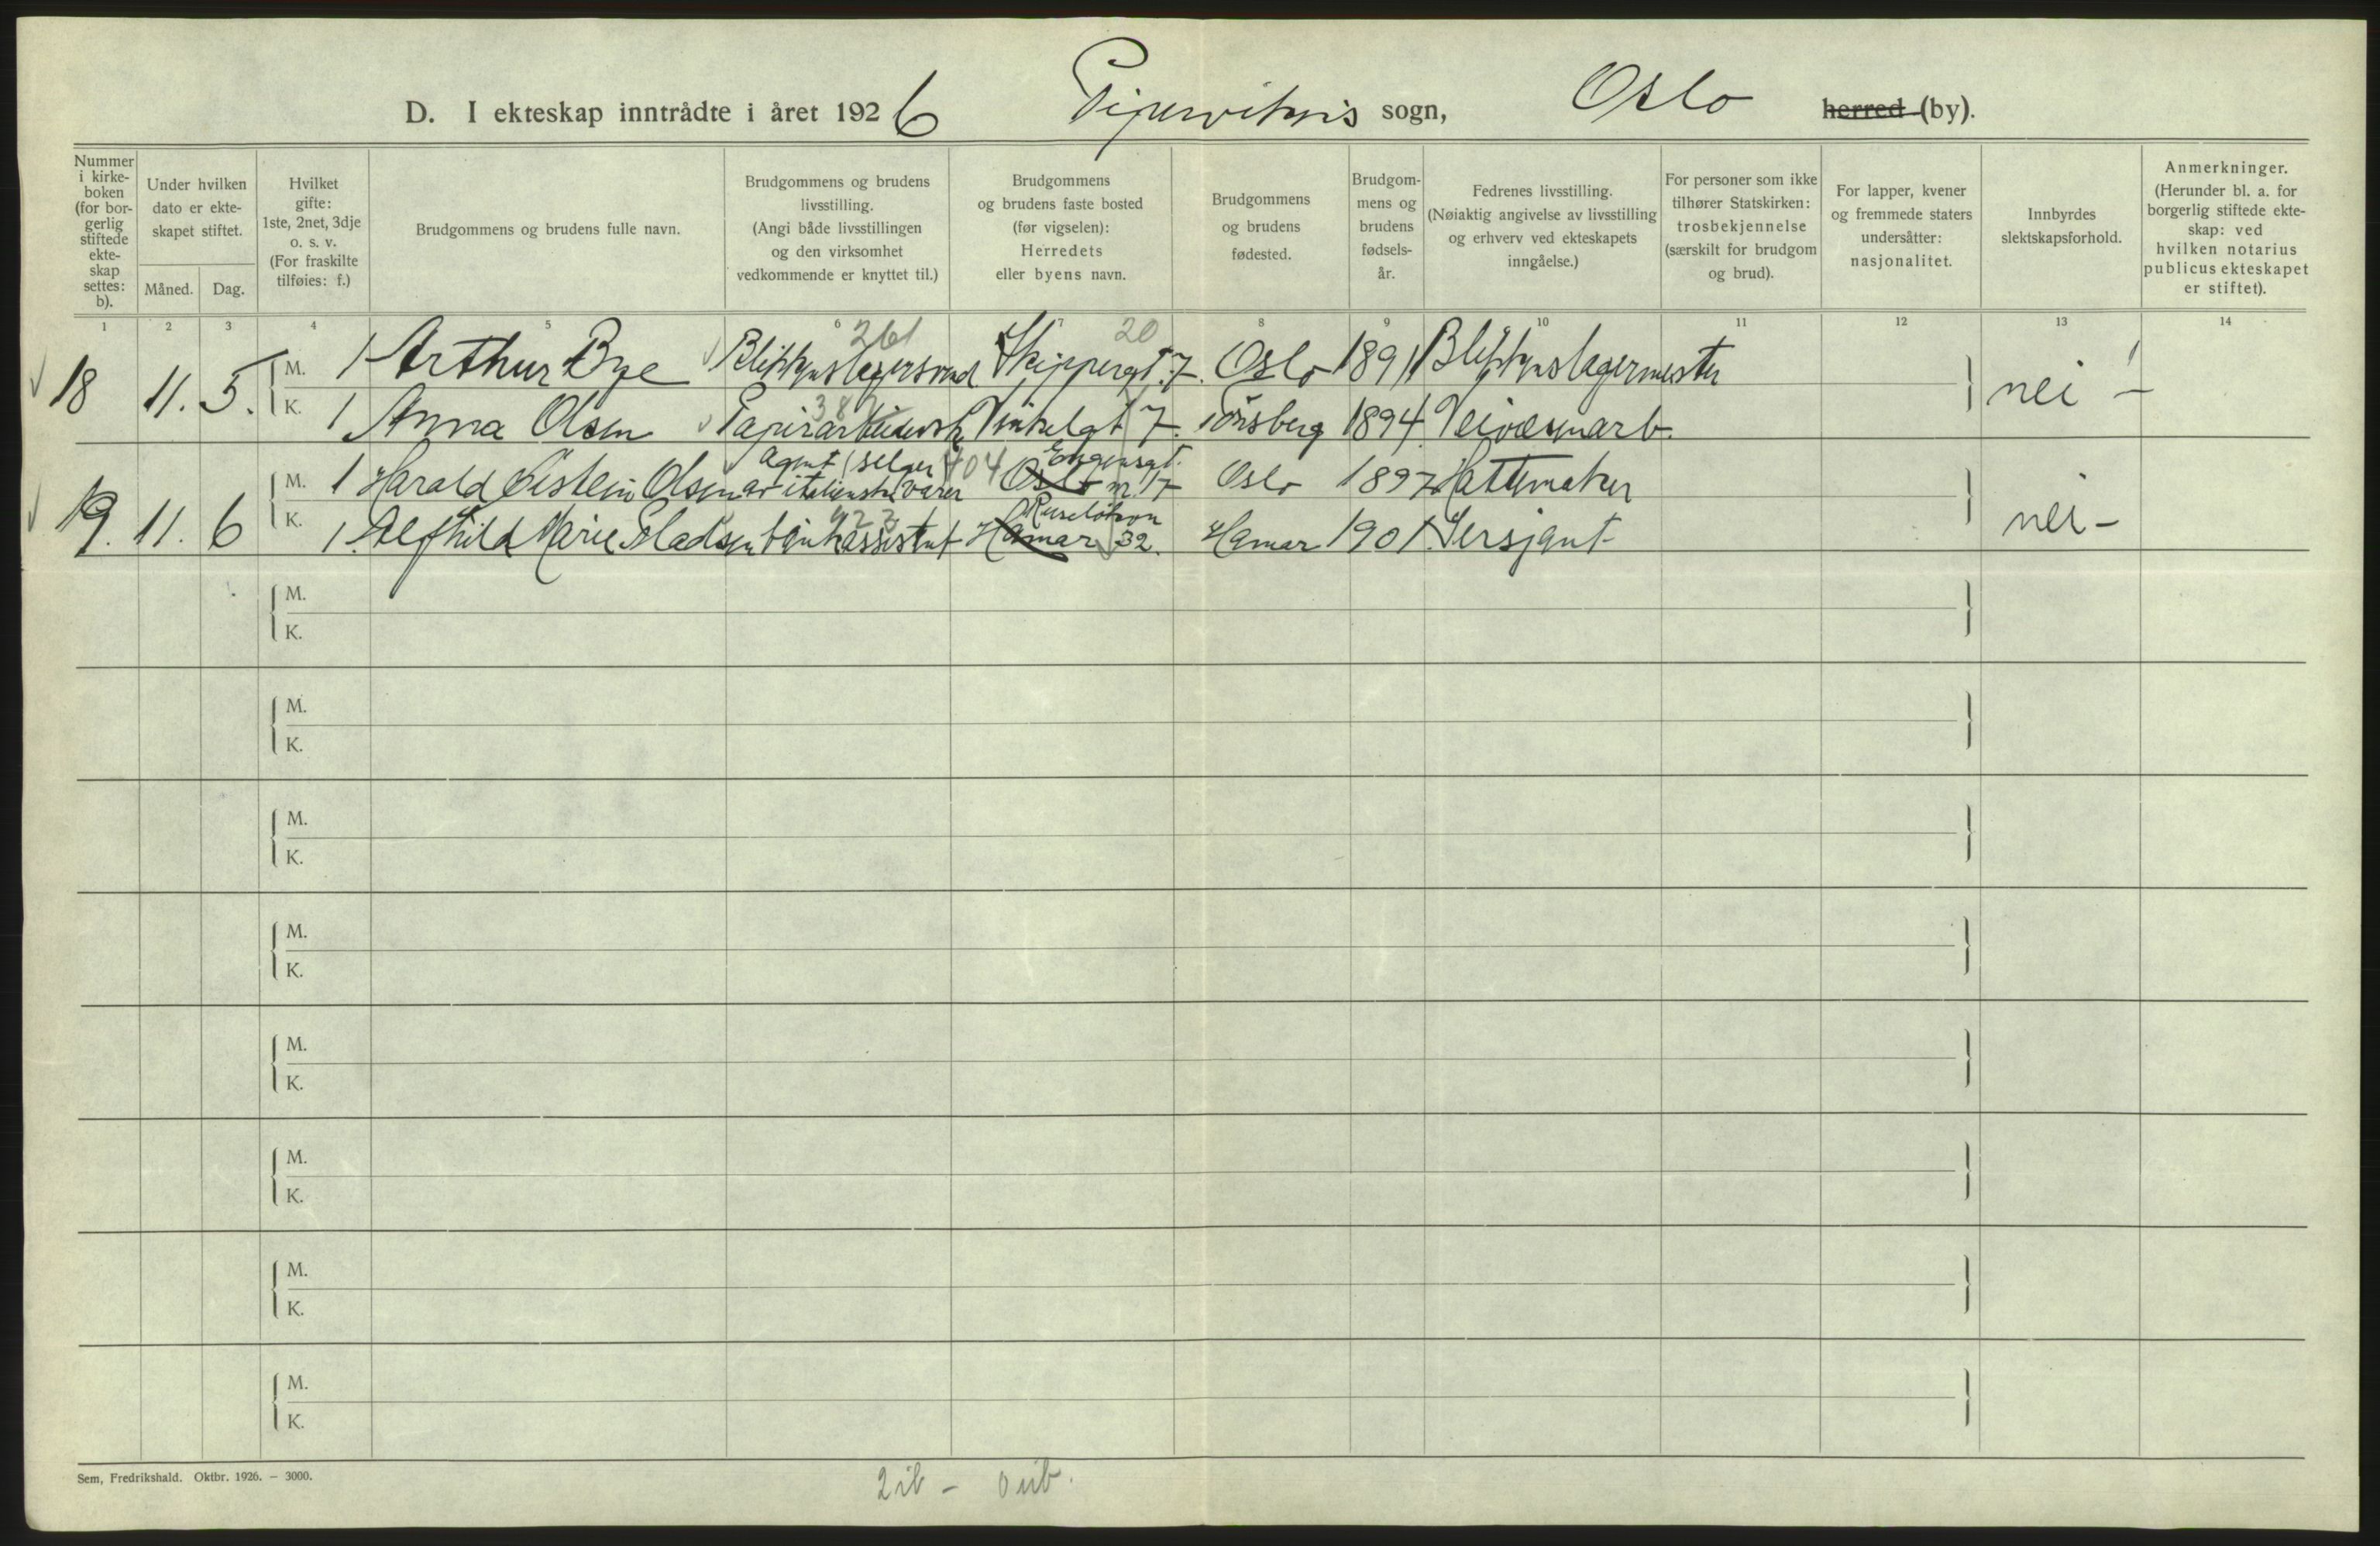 D. I ekteskap inntrådte i året 1926 Pipervikens sogn, Oslo herred (by).
Nummer i kirke-boken (for bor-gerlig stiftede ekte-skap settes: b).
Under hvilken dato er ekte-skapet stiftet.
Måned. Dag.
Hvilket gifte: 1ste, 2net, 3dje o. s. v. (For fraskilte tilføies: f.)
Brudgommens og brudens fulle navn.
Brudgommens og brudens livsstilling. (Angi både livsstillingen og den virksomhet vedkommende er knyttet til.)
Brudgommens og brudens faste bosted (før vigselen): Herredets eller byens navn.
Brudgommens og brudens fødested.
Brudgom-mens og brudens fødsels-år.
Fedrenes livsstilling. (Nøiaktig angivelse av livsstilling og erhverv ved ekteskapets inngåelse.)
For personer som ikke tilhører Statskirken: trosbekjennelse (særskilt for brudgom og brud).
For lapper, kvener og fremmede staters undersåtter: nasjonalitet.
Innbyrdes slektskapsforhold.
Anmerkninger. (Herunder bl. a. for borgerlig stiftede ekte-skap: ved hvilken notarius publicus ekteskapet er stiftet).
1 2 3 4 5 6 7 8 9 10 11 12 13 14
261 20
18 11. 5. M. 1 Arthur Bye Blikkenslagersvend Skippergt. 7. Oslo 1891 Blikkenslagermester nei –
K. 1 Anna Olsen Papirarbeiderske Vinkelgt 7. Tönsberg 1894 Veivesenarb.
Agent (selger 404 Engensgt.
19. 11. 6 M. 1 Harald Øistein Olsen av italienske varer Oslo nr. 17 Oslo 1897 Hattemaker nei –
Ruseløkvn
K. 1. Alfhild Marie Gladsen bankassistent Hamar 32. Hamar 1901. Sersjant
M.
K.
M.
K.
M.
K.
M.
K.
M.
K.
M.
K.
M.
K.
M.
K.
Sem, Fredrikshald. Oktbr. 1926. – 3000.
2 ib – 0 uib.